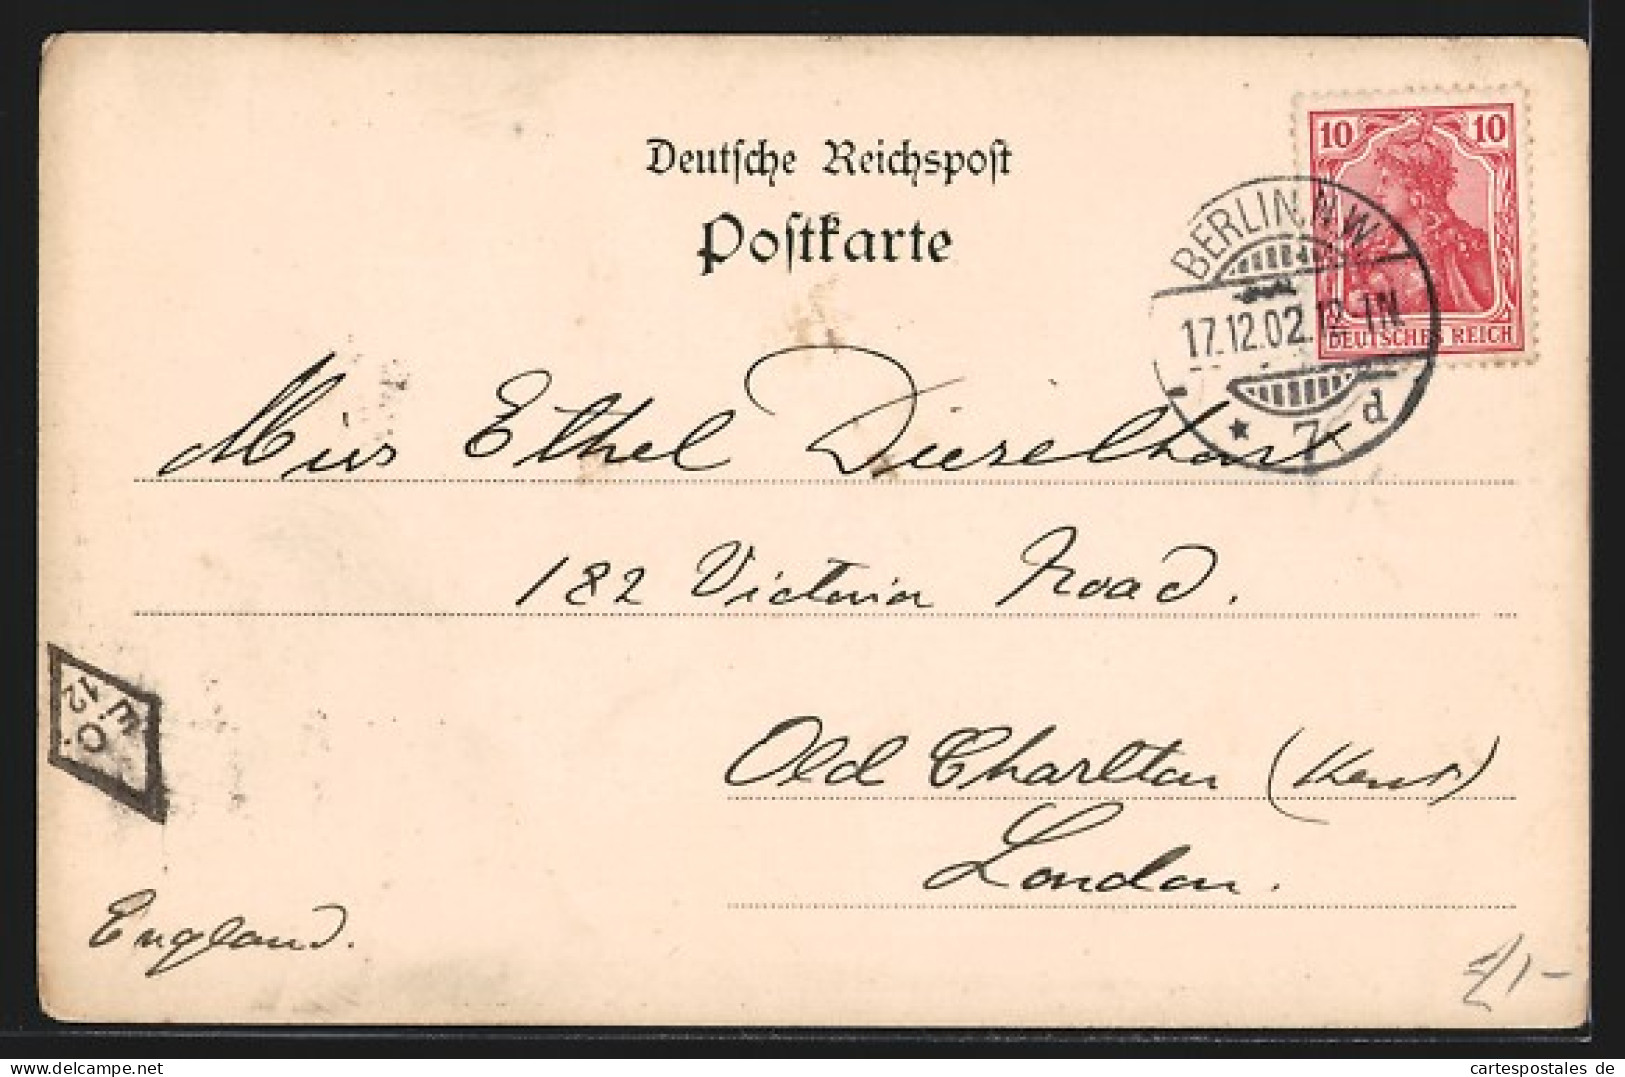 Deutsche Reichspost
Postkarte
10 10
DEUTSCHES REICH
BERLIN.N.W.
17.12.02. 12-1N.
* 7 d
Miss Ethel Dieselhorst
182 Victoria Road.
Old Charlton (Kent)
London.
England.
E.O.
12
www.delcampe.net
cartespostales de